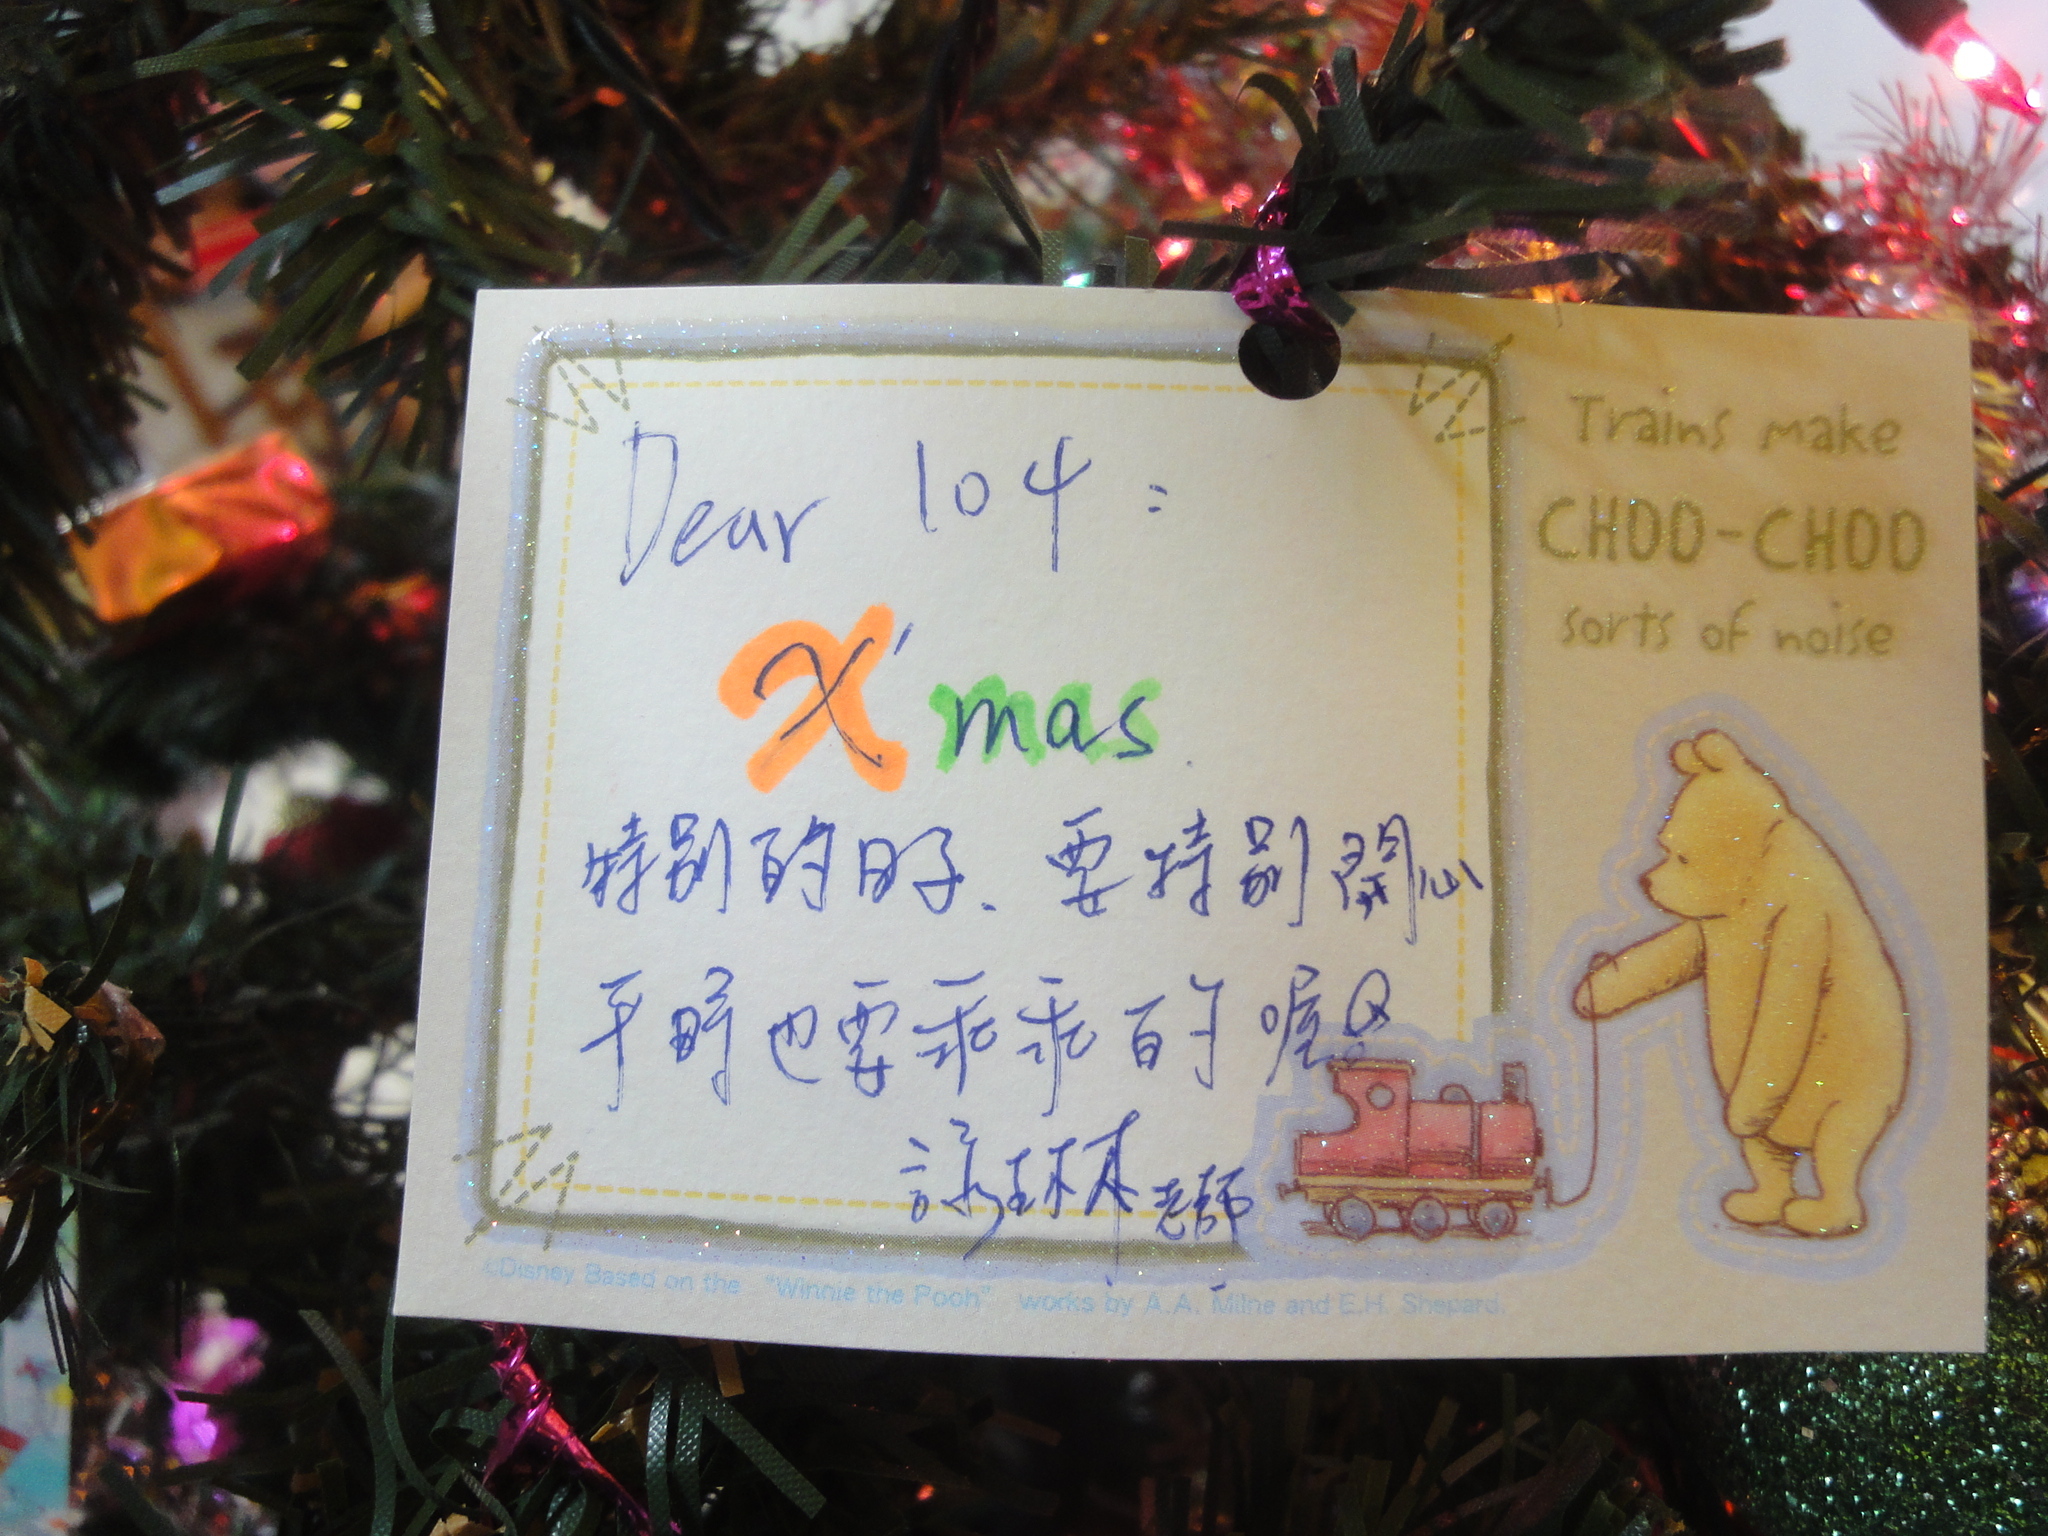 Dear 104:
X'mas
特別的日子、要特別開心
平時也要乖乖的喔!
詠琳老師
Trains make
CHOO-CHOO
sorts of noise
©Disney Based on the "Winnie the Pooh" works by A.A. Milne and E.H. Shepard.